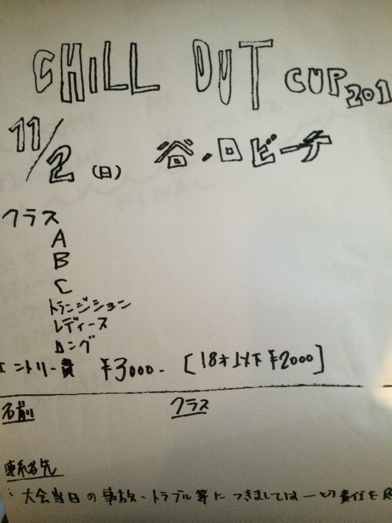 CHILL OUT CUP 201
11/2(日) 谷ノ口ビーチ
クラス
A
B
C
トランジション
レディース
ロング
エントリー費 ¥3000- [18才以下 ¥2000]
名前 クラス
連絡先
大会当日の事故・トラブル等につきましては一切責任を